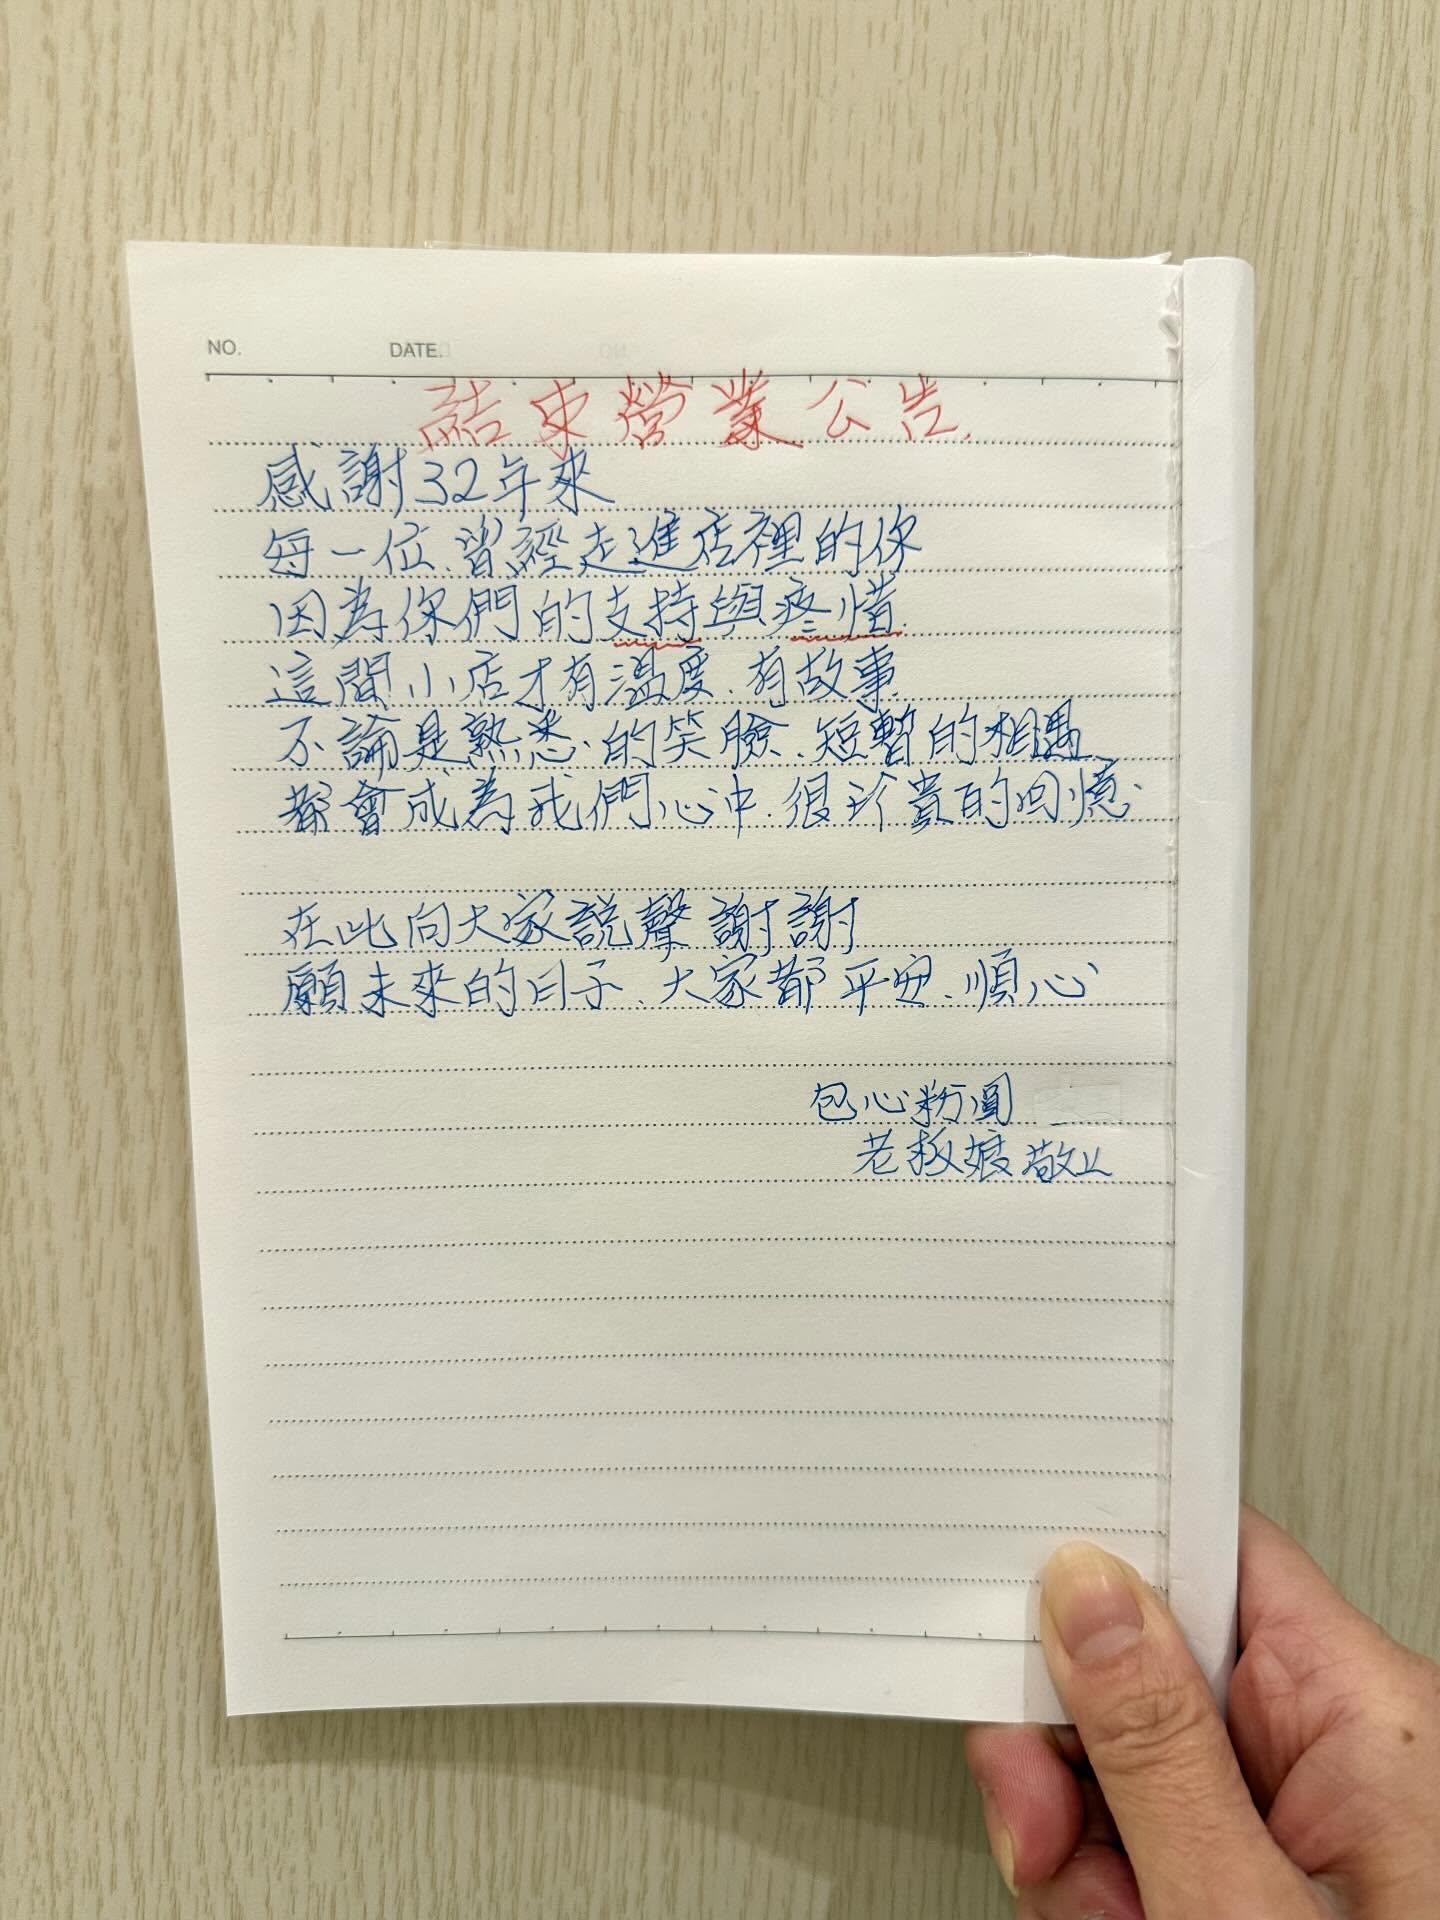 NO. DATE.
結束營業公告.
感謝32年來
每一位、曾經走進店裡的你
因為你們的支持與疼惜.
這間小店才有溫度、有故事
不論是熟悉、的笑臉、短暫的相遇
都會成為我們心中、很珍貴的回憶.
在此向大家說聲謝謝
願未來的日子、大家都平安、順心
包心粉圓
老板娘敬上